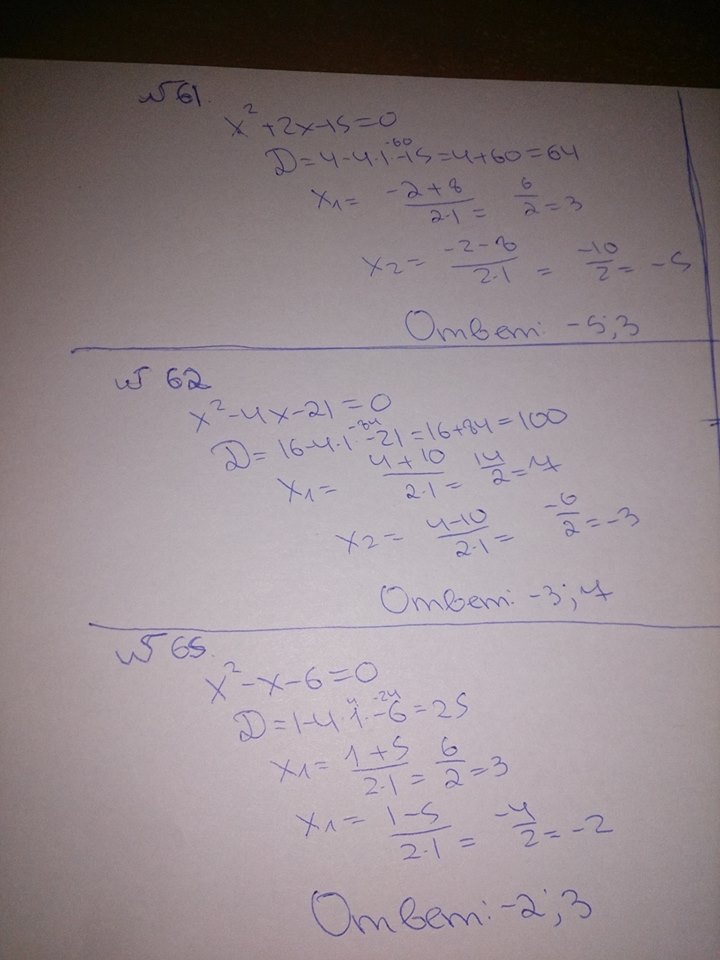 №61.
x²+2x-15=0
D=4-4·1·-15=4+60=64
-60
x1= -2+8/2·1= 6/2=3
x2= -2-8/2·1 = -10/2= -5
Ответ: -5;3
№ 62
x²-4x-21=0
D=16-4·1·-21=16+84=100
-84
x1= 4+10/2·1= 14/2=7
x2= 4-10/2·1= -6/2=-3
Ответ: -3;7
№ 65.
x²-x-6=0
D=1-4·1·-6=25
4 -24
x1= 1+5/2·1= 6/2=3
x1= 1-5/2·1= -4/2=-2
Ответ: -2;3